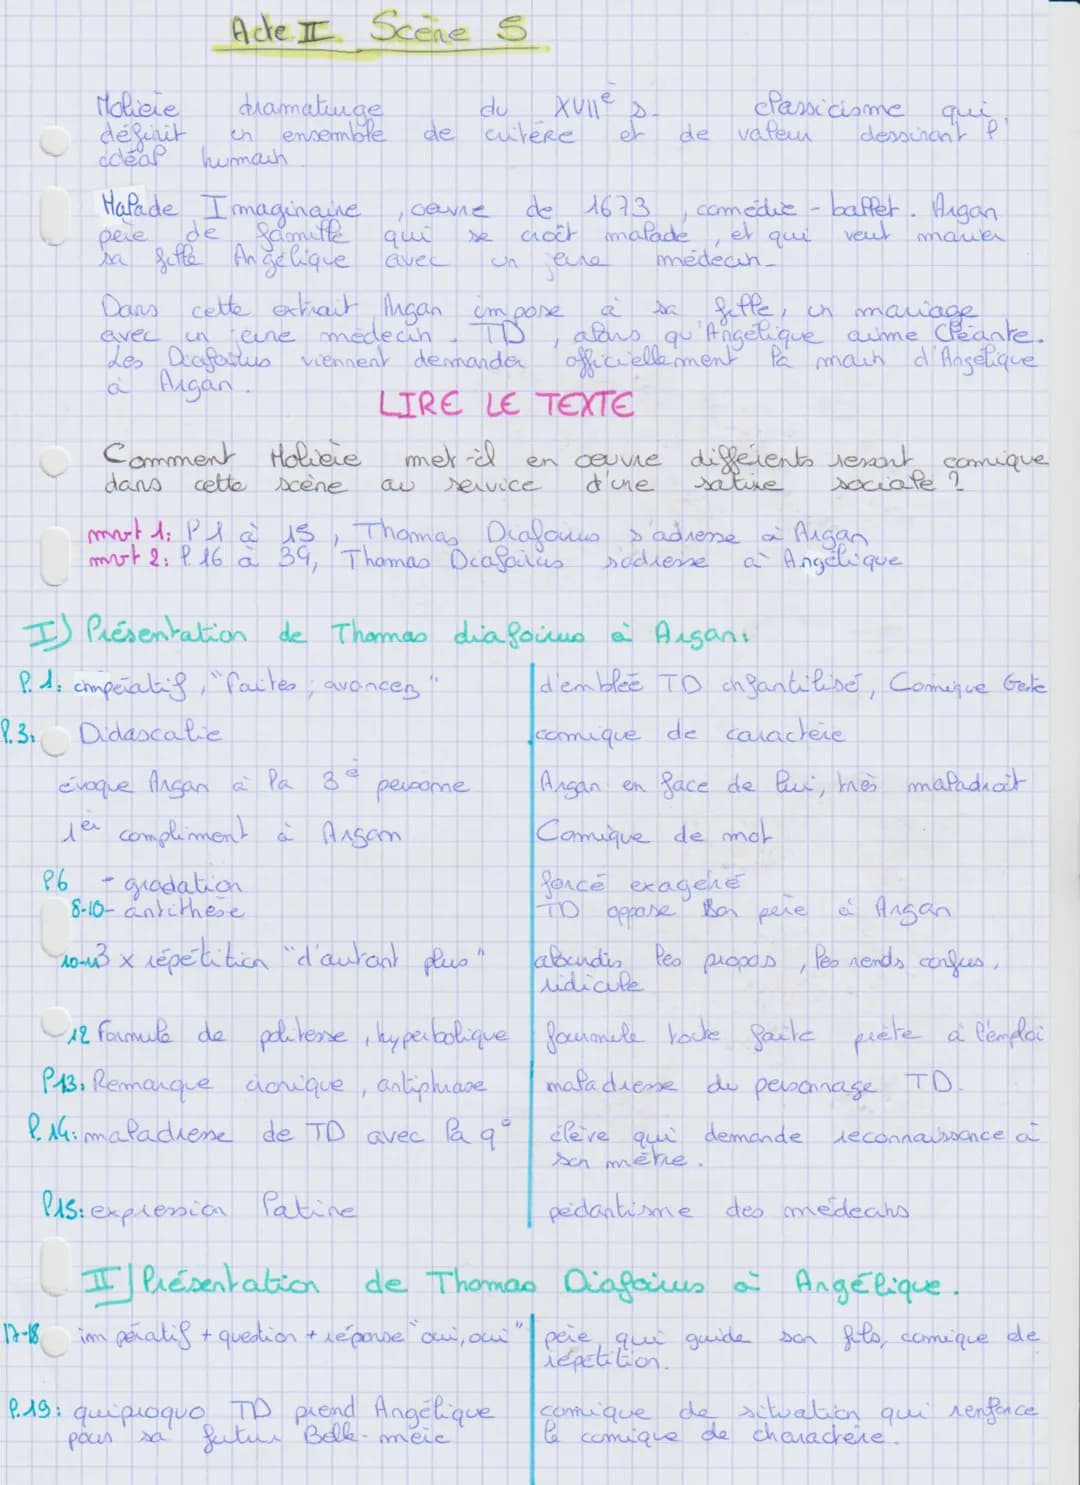 Acte II Scène 5
Molière dramaturge du XVIIè s. classicisme qui
définit un ensemble de critère et de valeur dessinant l'
idéal humain
Malade Imaginaire, œuvre de 1673, comédie-ballet. Argan
père de famille qui se croit malade, et qui veut marier
sa fille Angélique avec un jeune médecin.
Dans cette extrait Argan impose à sa fille, un mariage
avec un jeune médecin. TD, alors qu'Angélique aime Cléante.
Les Diafoirus viennent demander officiellement la main d'Angélique
à Argan.
LIRE LE TEXTE
Comment Molière met-il en œuvre différents ressort comique
dans cette scène au service d'une satire sociale ?
mvt 1: l 1 à 15, Thomas Diafoirus s'adresse à Argan
mvt 2: l. 16 à 39, Thomas Diafoirus s'adresse à Angélique
I) Présentation de Thomas diafoirus à Argan:
l. 1: impératif, "faites, avancez" d'emblée TD infantilisé, Comique Geste
l.3: Didascalie comique de caractère
évoque Argan à la 3è personne Argan en face de lui, très maladroit
1er compliment à Argan Comique de mot
l6 - gradation forcé exagéré
8-10- antithèse TD oppose son père à Argan
10-11 3 x répétition "d'autant plus" alourdis les propos, les rends confus,
ridicule
12 Formule de politesse, hyperbolique formule toute faite prète à l'emploi
l13: Remarque ironique, antiphrase maladresse du personnage TD.
l.14: maladresse de TD avec la q° élève qui demande reconnaissance à
son mètre.
l15: expression latine pédantisme des médecins
II) Présentation de Thomas Diafoirus à Angélique.
17-18 impératif + question + réponse "oui, oui" père qui guide son fils, comique de
répétition.
l.19: quiproquo TD prend Angélique comique de situation qui renforce
pour sa future Belle-mère le comique de charactère.